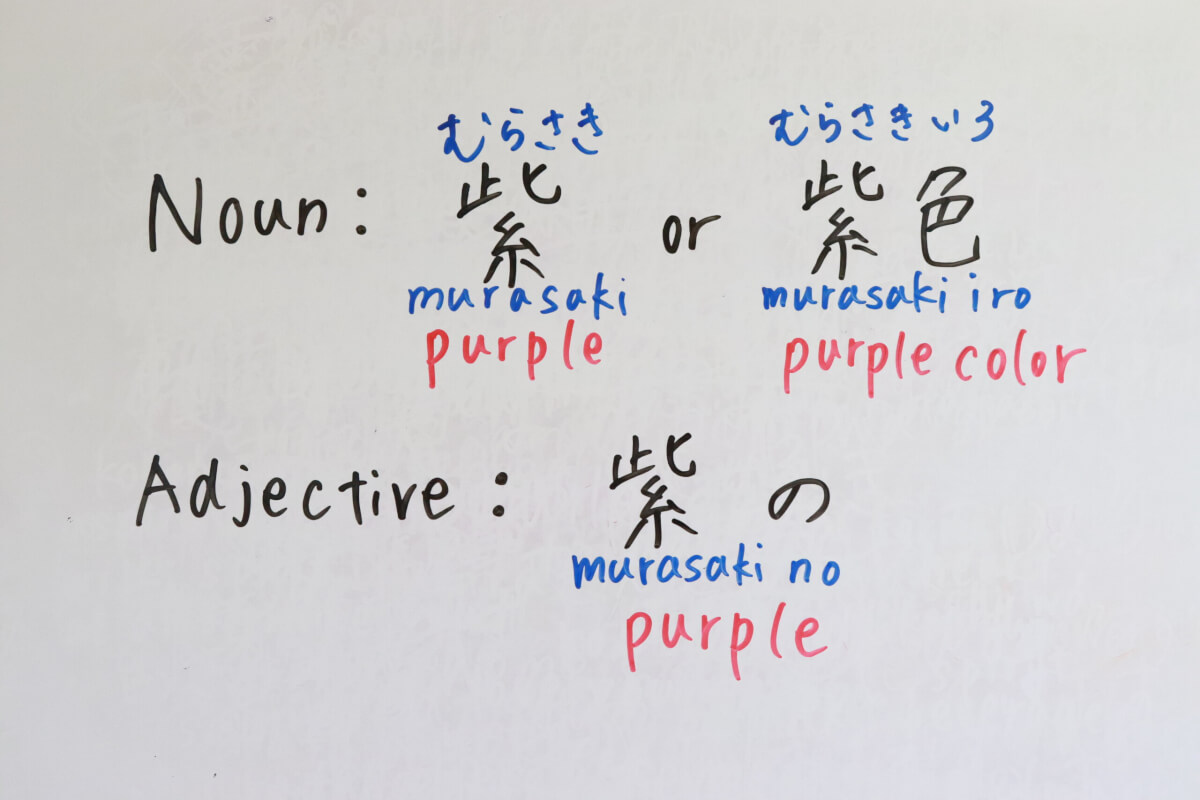 むらさき むらさきいろ
Noun: 紫 or 紫色
murasaki murasaki iro
purple purple color
Adjective: 紫の
murasaki no
purple